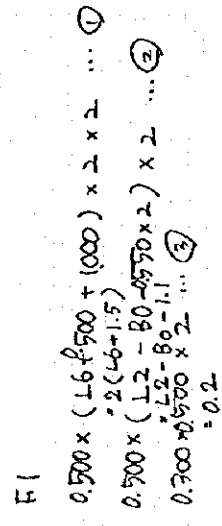 F1
0.500 × (L6+0.500 + 1.000) × 2 × 2 … ①
= 2(L6+1.5)
0.500 × (L2 - B0 - 0.550 × 2) × 2 … ②
= L2 - B0 - 1.1
0.300 × 0.500 × 2 … ③
= 0.2